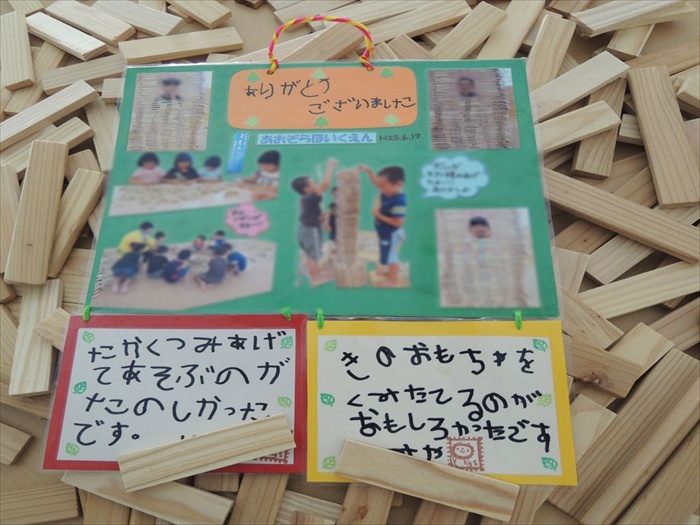 ありがとう
ございました
あおぞらほいくえん
H25.6.17
たかくつみあげ
てあそぶのが
たのしかった
です。
きのおもちゃを
くみたてるのが
おもしろかったです